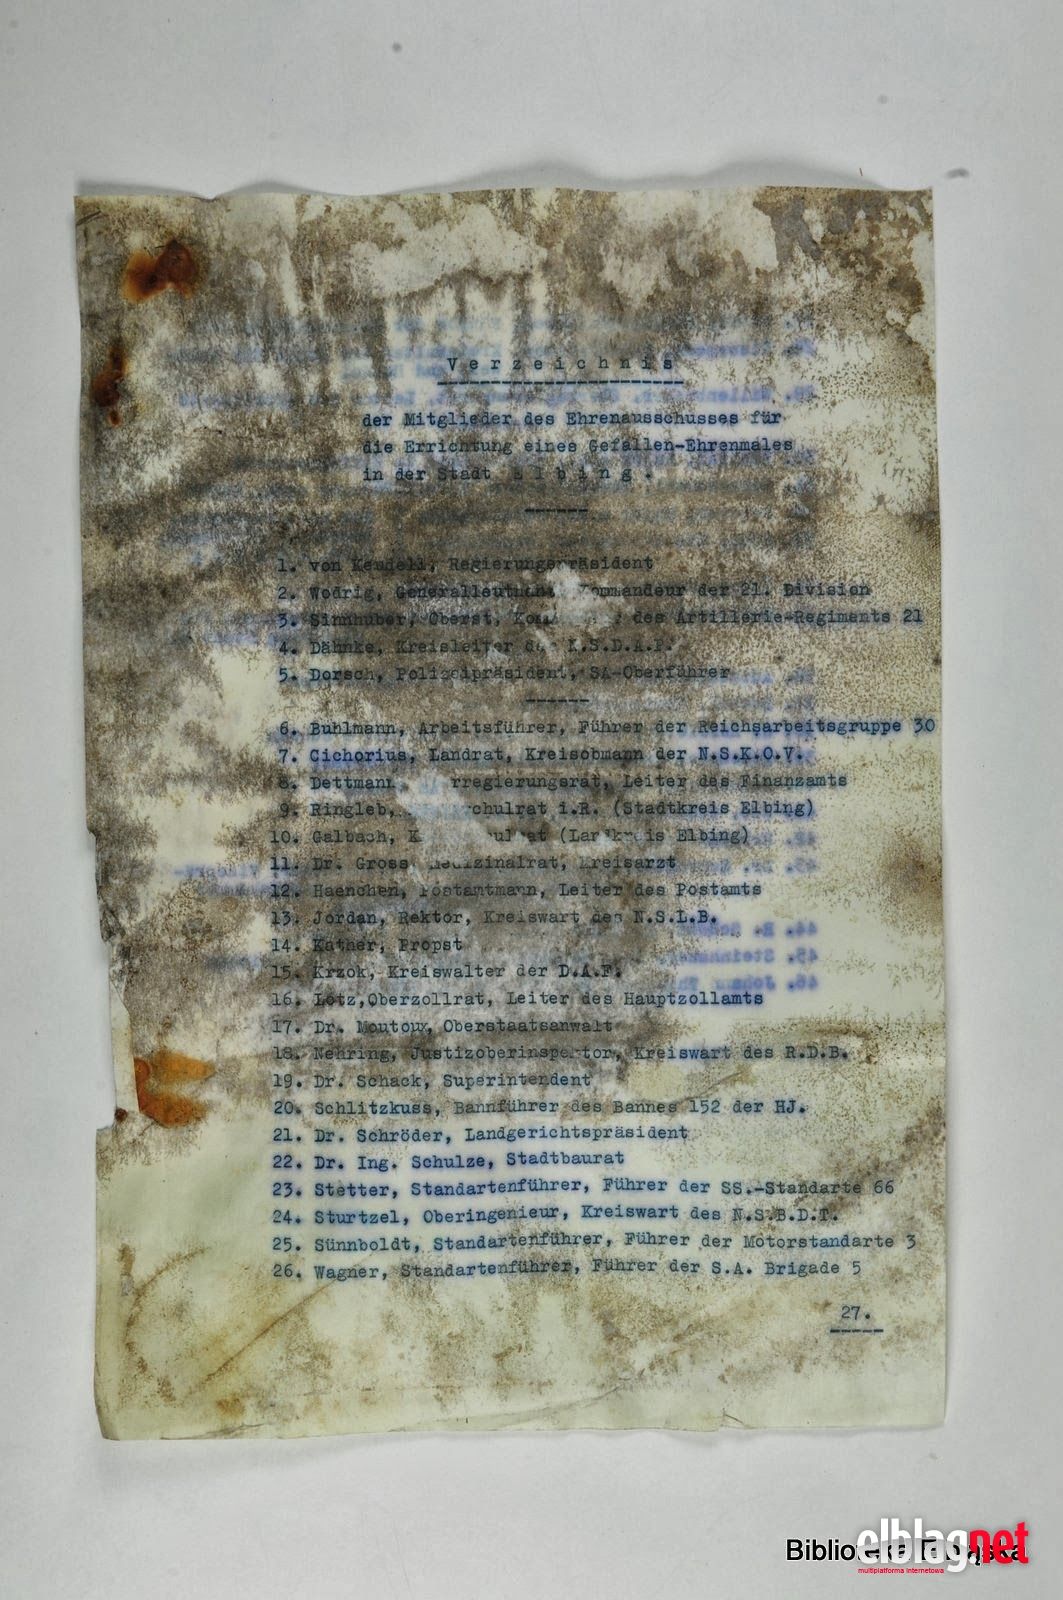 Verzeichnis
der Mitglieder des Ehrenausschusses für
die Errichtung eines Gefallen-Ehrenmales
in der Stadt Elbing.
1. von Keudell, Regierungspräsident
2. Wodrig, Generalleutnant, Kommandeur der 21. Division
3. Sinnhuber, Oberst, des Artillerie-Regiments 21
4. Dähnke, Kreisleiter der N.S.D.A.P.
5. Dorsch, Polizeipräsident, SA-Oberführer
6. Buhlmann, Arbeitsführer, Führer der Reichsarbeitsgruppe 30
7. Cichorius, Landrat, Kreisobmann der N.S.K.O.V.
8. Dettmann, rregierungsrat, Leiter des Finanzamts
9. Ringleb, chulrat i.R. (Stadtkreis Elbing)
10. Galbach, K ulrat (Landkreis Elbing)
11. Dr. Gross Medizinalrat, Kreisarzt
12. Haenchen, Postamtmann, Leiter des Postamts
13. Jordan, Rektor, Kreiswart des N.S.L.B.
14. Kather, Propst
15. Krzok, Kreiswalter der D.A.F.
16. Lotz,Oberzollrat, Leiter des Hauptzollamts
17. Dr. Moutoux, Oberstaatsanwalt
18. Nehring, Justizoberinspektor, Kreiswart des R.D.B.
19. Dr. Schack, Superintendent
20. Schlitzkuss, Bannführer des Bannes 152 der HJ.
21. Dr. Schröder, Landgerichtspräsident
22. Dr. Ing. Schulze, Stadtbaurat
23. Stetter, Standartenführer, Führer der SS.-Standarte 66
24. Sturtzel, Oberingenieur, Kreiswart des N.S.B.D.T.
25. Sünnboldt, Standartenführer, Führer der Motorstandarte 3
26. Wagner, Standartenführer, Führer der S.A. Brigade 5
27.
Biblioteka Elbląska
elblag.net
multiplatforma internetowa